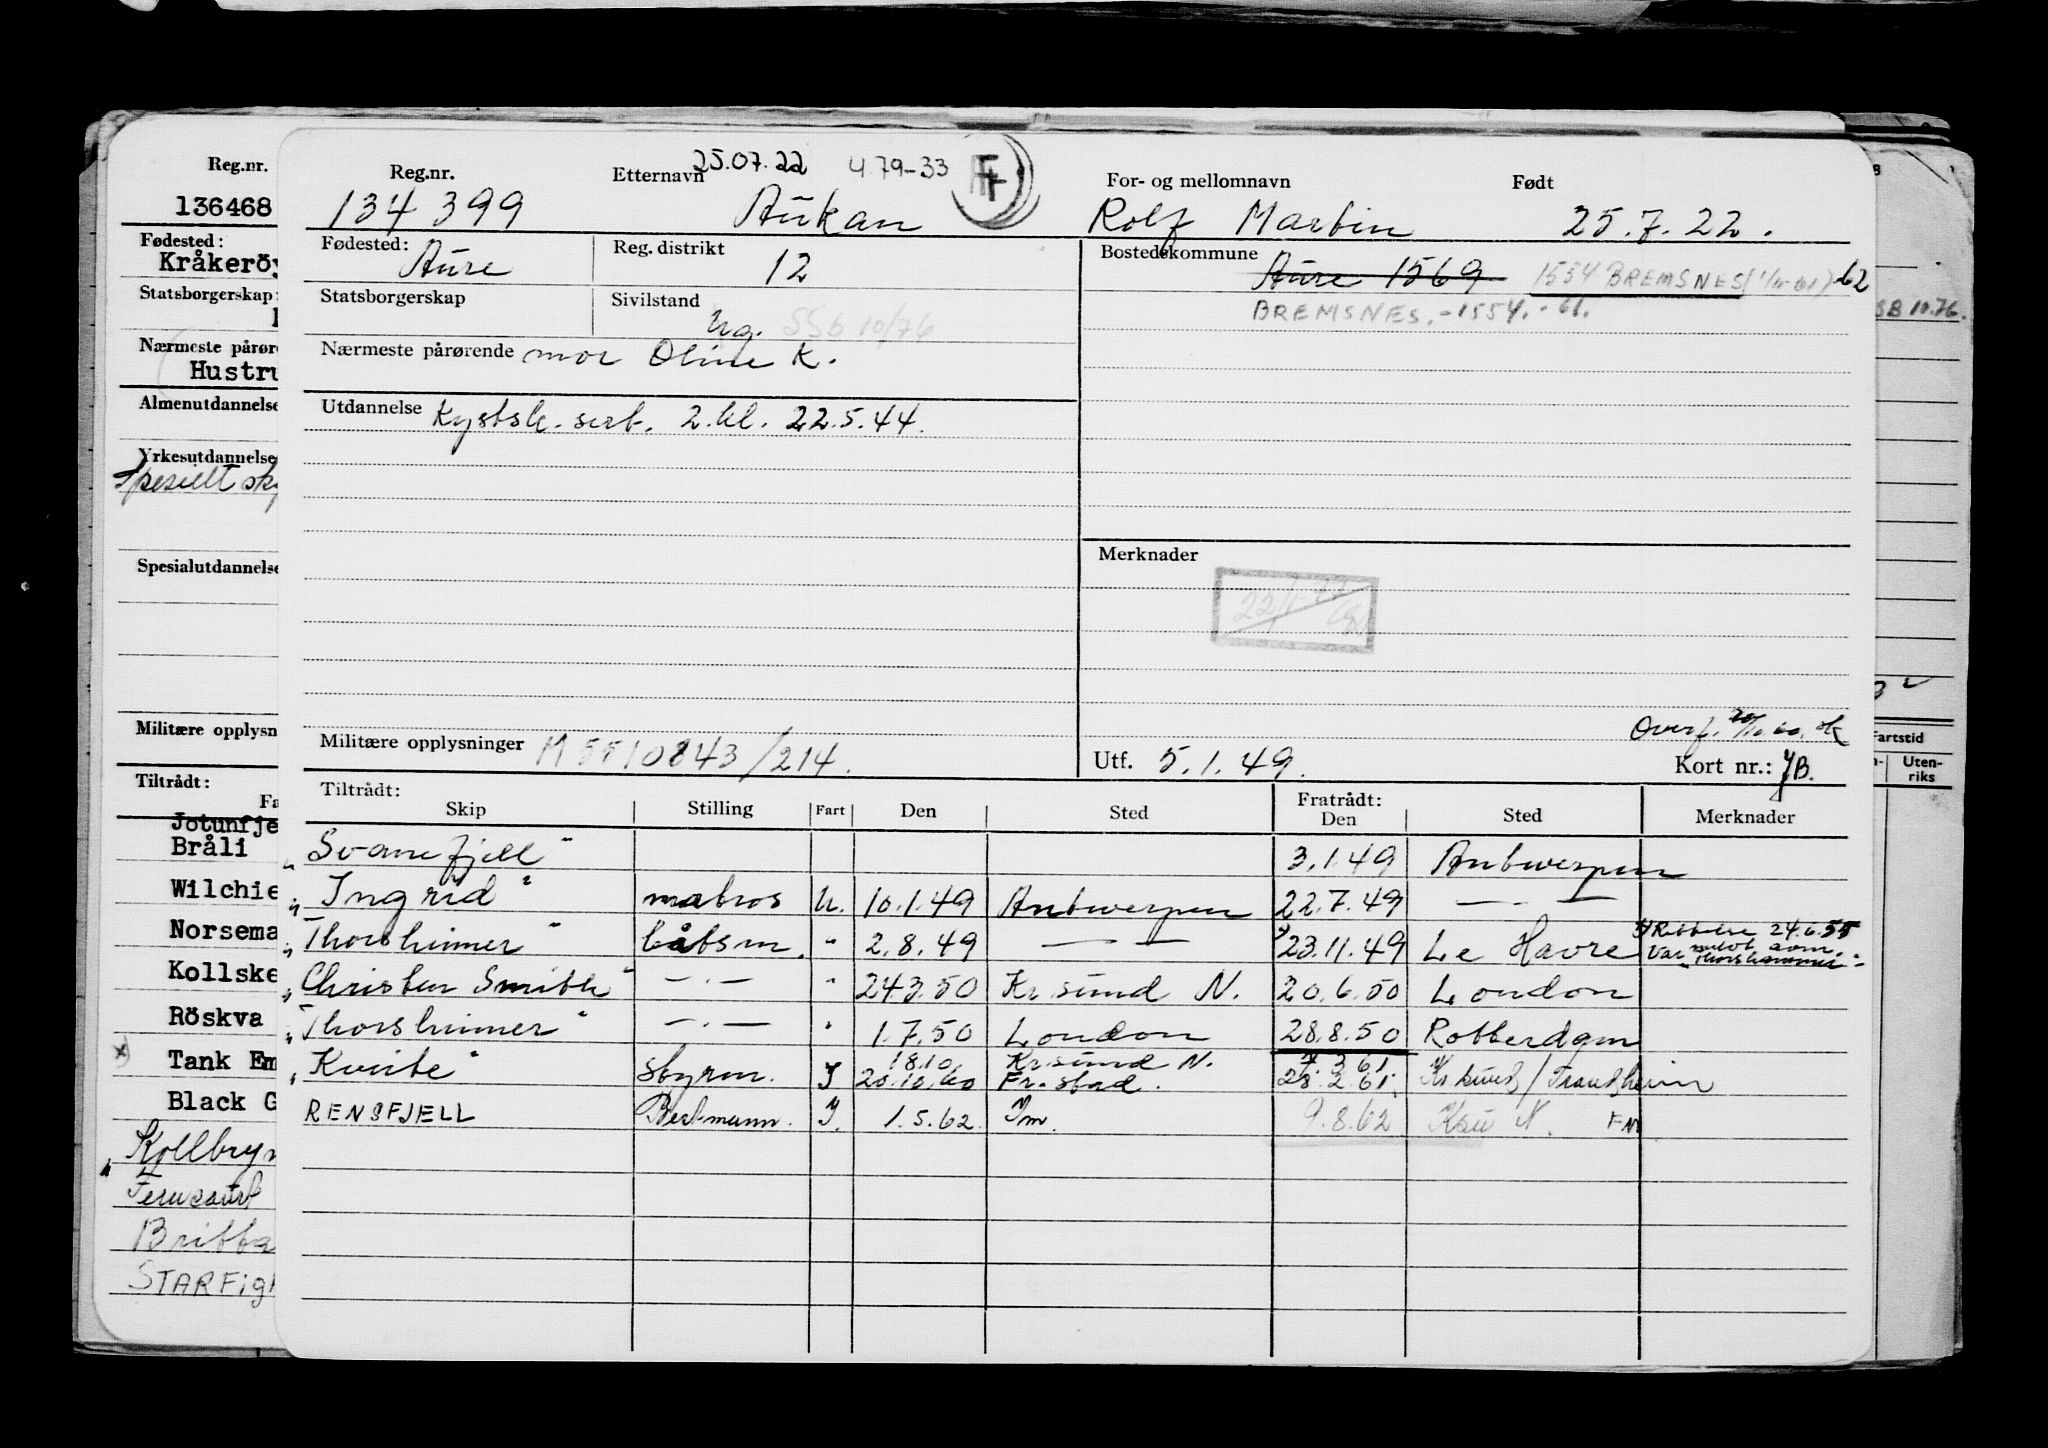 Reg.nr.
136468
Fødested:
Kråkerö
Statsborgerskap
Nærmeste pårøre
Hustru
Almenutdannelse
Yrkesutdannelse
Spesielt
Spesialutdannelse
Militære opplysn
Tiltrådt:
Jotunfje
Bråli
Wilchie
Norsema
Kollske
Röskva
Tank Em
Black G
Kollbryn
Britta
STARFigh
25.07.22 479-33
Reg.nr. Etternavn For- og mellomnavn Født
134399 Aukan Rolf Martin 25.7.22.
Fødested: Aure Reg. distrikt 12
Bostedskommune Aure 1569 1554 BREMSNES 62
BREMSNES.-1554.-61.
Statsborgerskap Sivilstand Ug. SSb 10/76
Nærmeste pårørende mor Oline K.
Utdannelse Kystsk. sert. 2.kl. 22.5.44.
Merknader
Overf.
Militære opplysninger M5510843/214.
Utf. 5.1.49. Kort nr.:
Tiltrådt: Fratrådt:
Skip Stilling Fart Den Sted Den Sted Merknader
"Svanefjell" 3.1.49 Antwerpen
"Ingrid" matros U. 10.1.49 Antwerpen 22.7.49 — · —
"Thorshimer" båtsm. " 2.8.49 — — x) 23.11.49 Le Havre x) Rettelse 24.6.55
var meldt som "Thorshammer"
"Christen Smith" — · — " 24.3.50 Kr.sund N. 20.6.50 London
"Thorshimer" — · — " 1.7.50 London 28.8.50 Rotterdam
18.10 Kr.sund N. 3.61.
"Kvite" styrm. I 20.10.60 Fr.stad. 28.2.61. Kr.sund/Trondheim
RENSFJELL Bestmann. I. 1.5.62. Tm. 9.8.62 Ksu N. FM
SB 10.76.
Fartstid
Uten-
riks